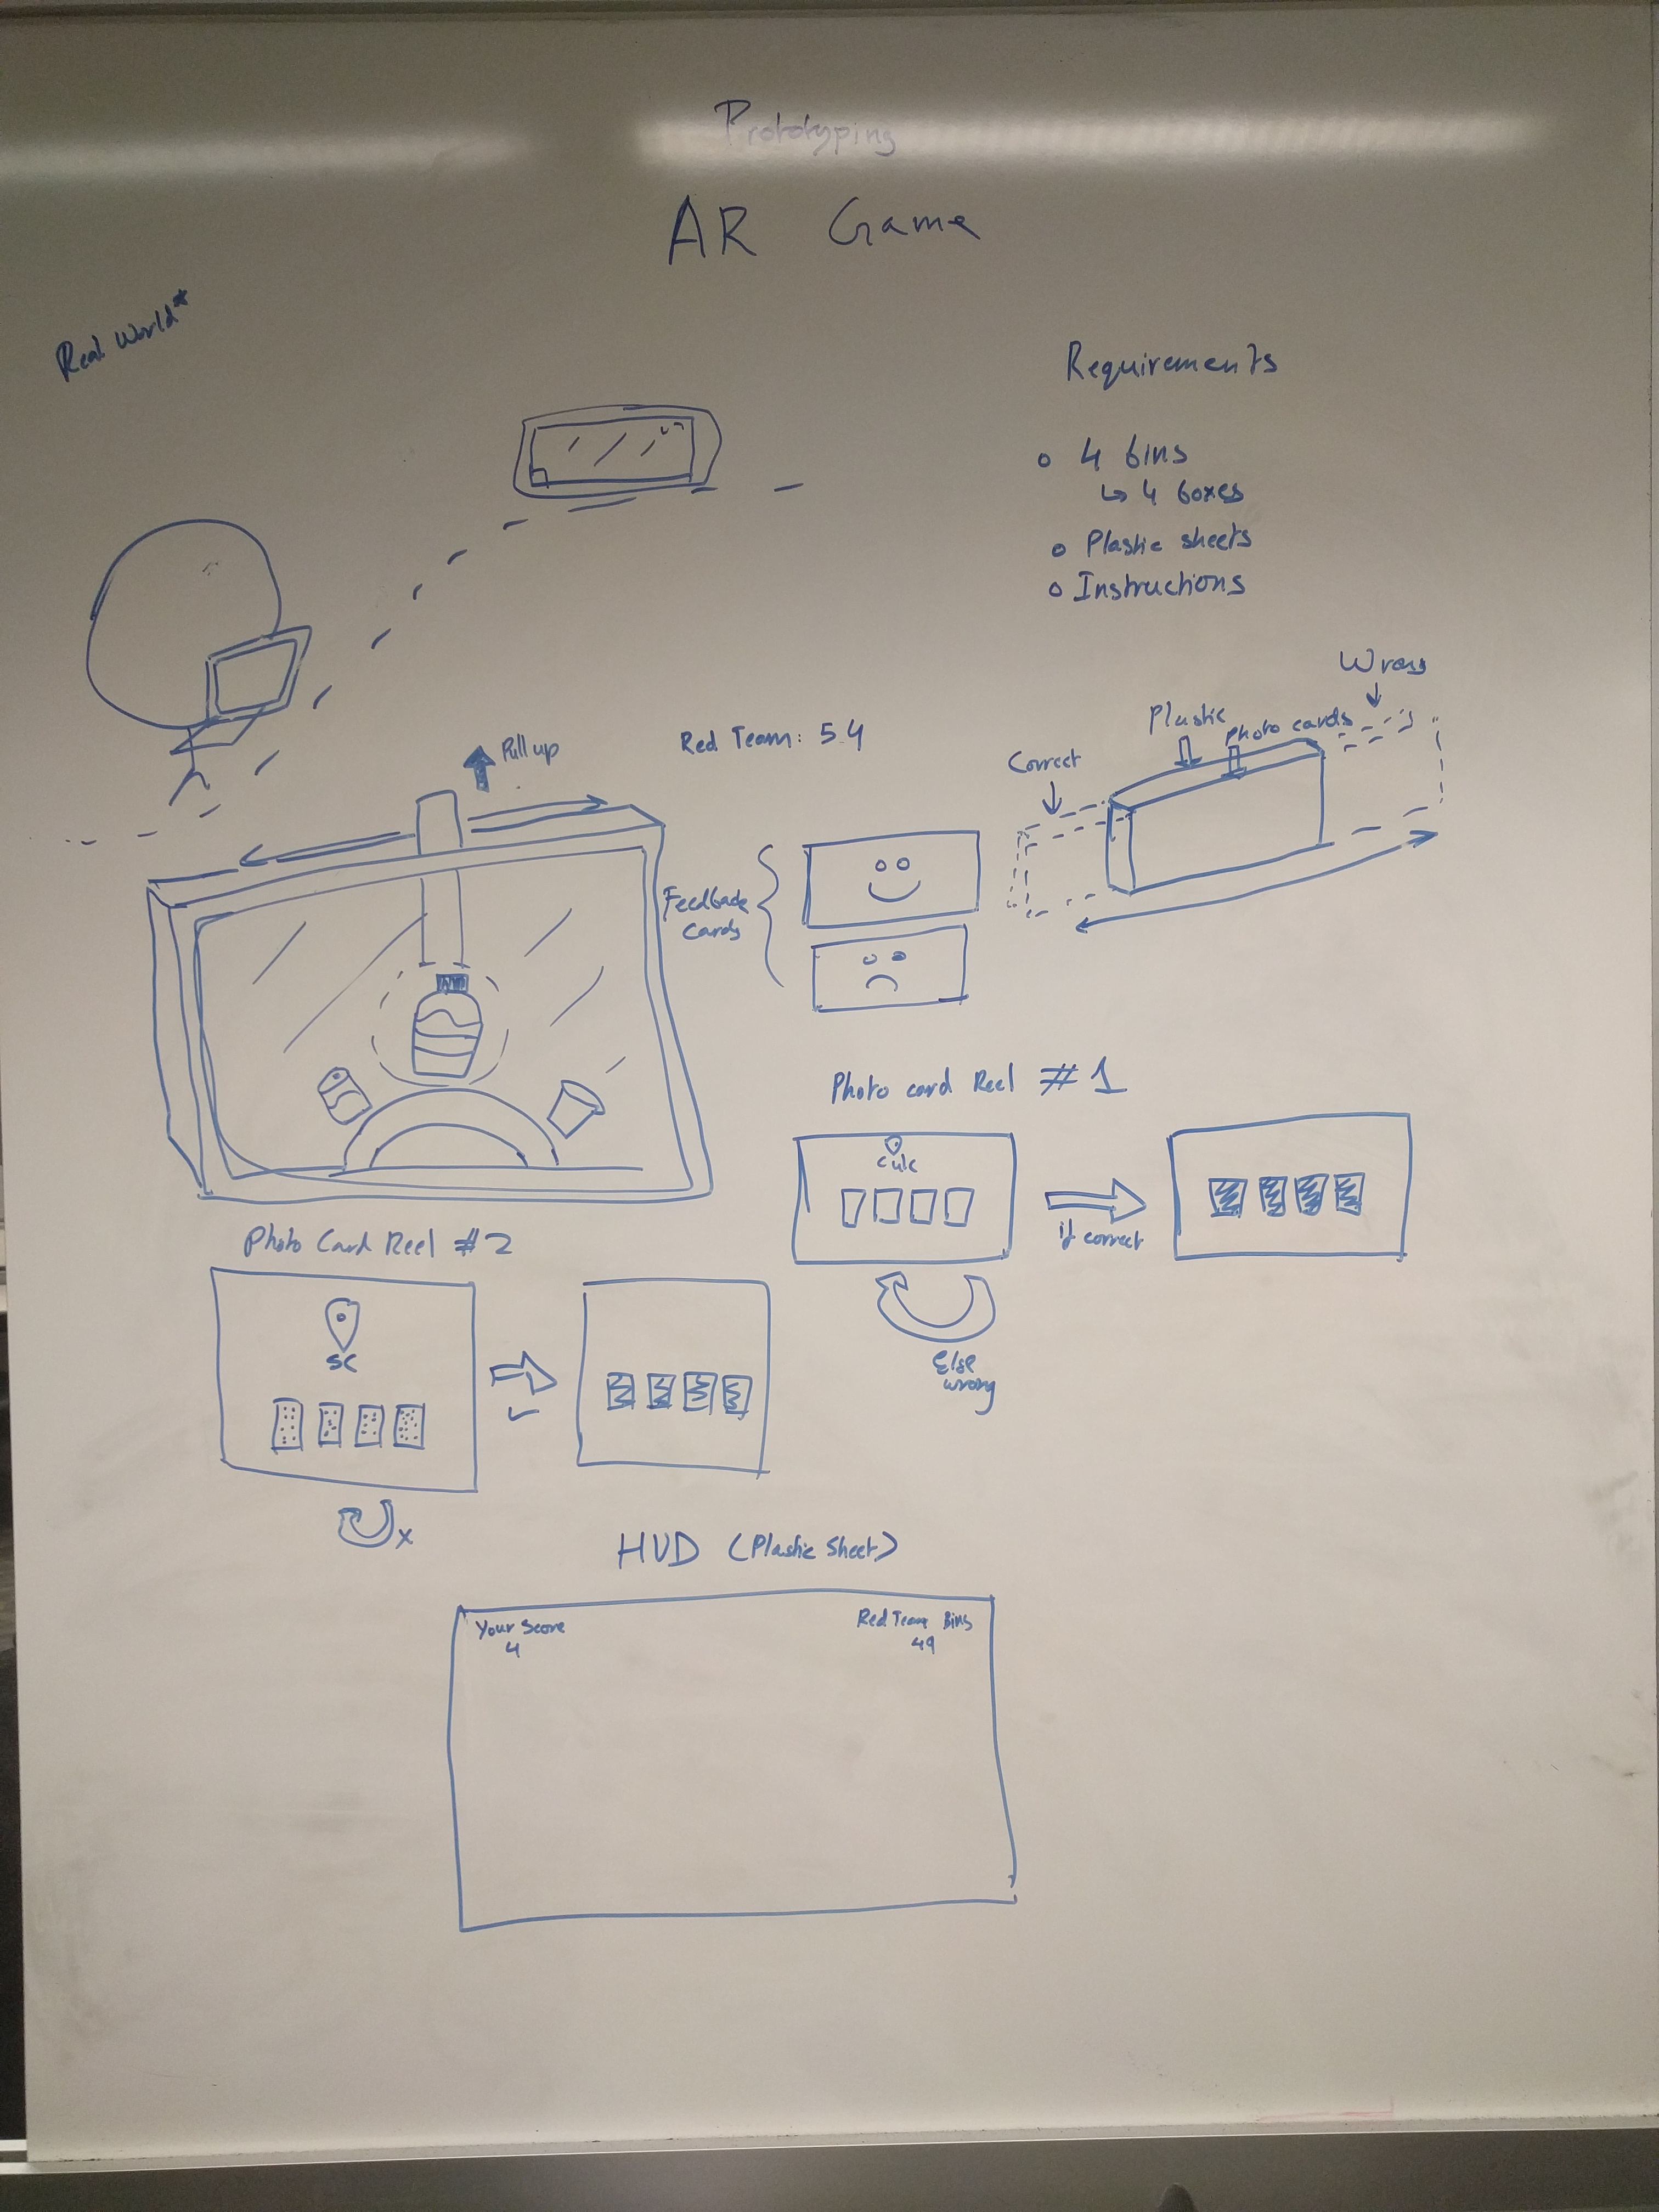 Prototyping
AR Game
Real World*
Requirements
4 bins
↳ 4 boxes
Plastic sheets
Instructions
Wrong
Plastic
Photo cards
Correct
Pull up
Red Team: 54
Feedback
Cards
Photo card Reel #1
CULC
if correct
Else
wrong
Photo Card Reel #2
SC
✓
x
HUD (Plastic Sheet)
Your Score
4
Red Team Bins
49